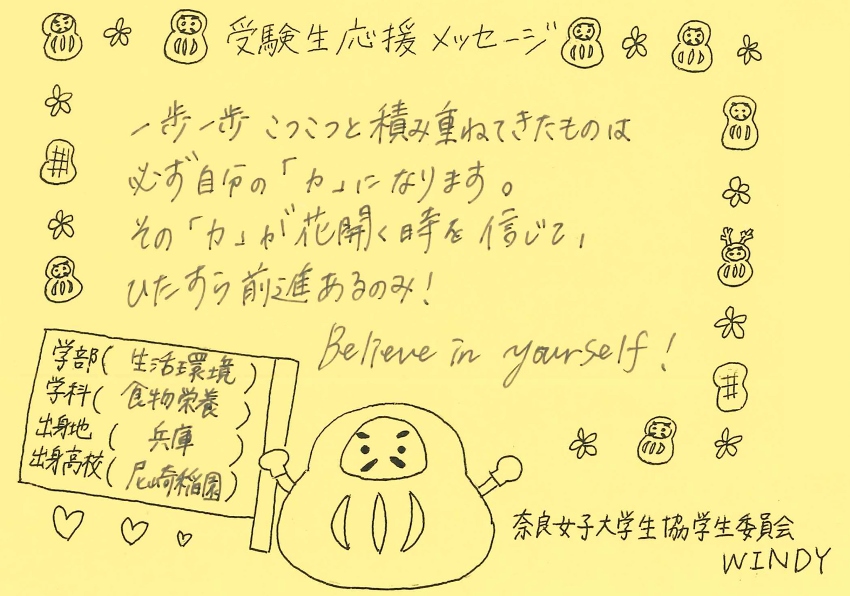 受験生応援メッセージ
一歩一歩 こつこつと積み重ねてきたものは
必ず自分の「力」になります。
その「力」が花開く時を信じて、
ひたすら前進あるのみ!
Believe in yourself!
学部(生活環境)
学科(食物栄養)
出身地(兵庫)
出身高校(尼崎稲園)
奈良女子大学生協学生委員会
WINDY